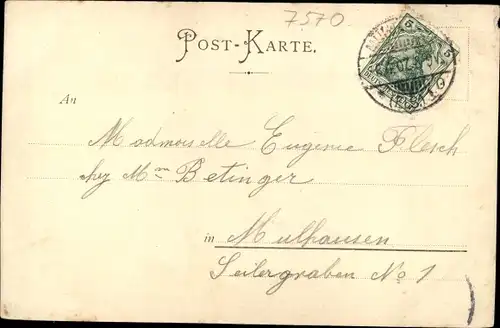 7570
POST-KARTE.
5 5
An
Madmoiselle Eugenie Flesch
chez Mme Betinger
in Mulhausen
Seilergraben No 1